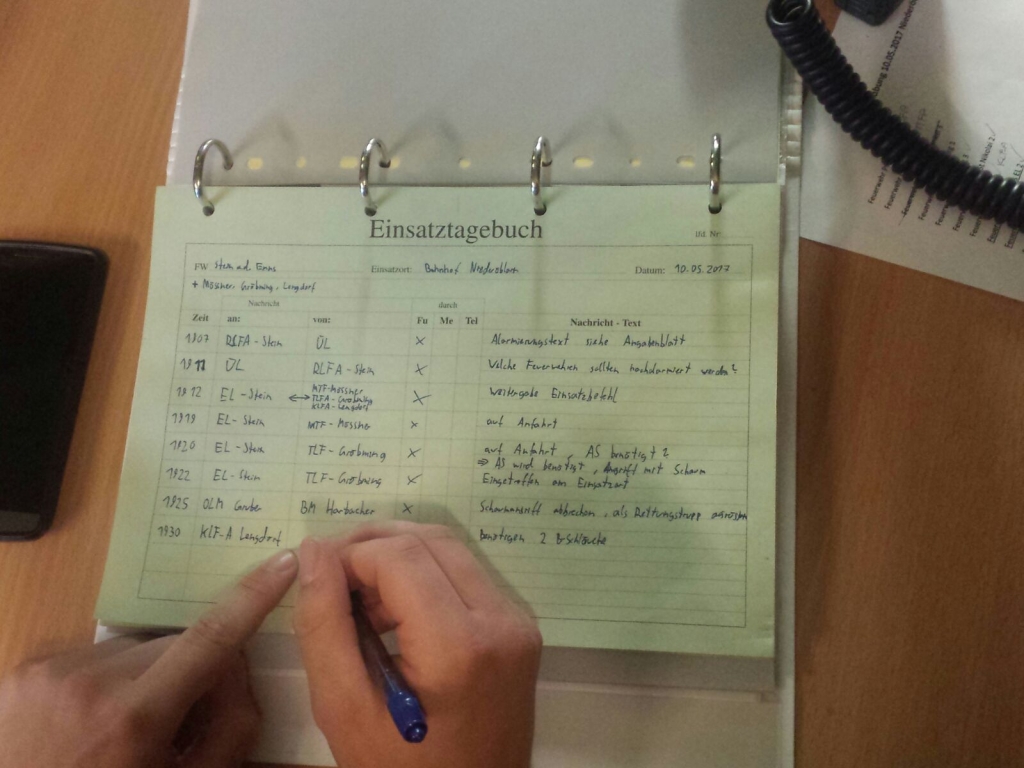 Einsatztagebuch
lfd. Nr:
FW Stein a.d. Enns Einsatzort: Bahnhof Niederöblarn Datum: 10.05.2017
+ Mössner, Gröbming, Lengdorf
Nachricht durch
Zeit an: von: Fu Me Tel Nachricht - Text
1907 RLFA - Stein ÜL X Alarmierungstext siehe Angabenblatt
1911 ÜL RLFA - Stein X Welche Feuerwehren sollten nachalarmiert werden?
MTF-Mössner
1912 EL - Stein <-> TLFA - Gröbming X weitergabe Einsatzbefehl
KLFA - Lengdorf
1919 EL - Stein MTF - Mössner X auf Anfahrt
1920 EL - Stein TLF - Gröbming X auf Anfahrt, AS benötigt?
=> AS wird benötigt, Angriff mit Schaum
1922 EL - Stein TLF - Gröbming X Eingetroffen am Einsatzort
1925 OLM Gruber BM Harbacher X Schaumangriff abbrechen, als Rettungstrupp ausrüsten
1930 KLF-A Lengdorf benötigen 2 B-Schläuche
10.05.2017
Feuerwehr